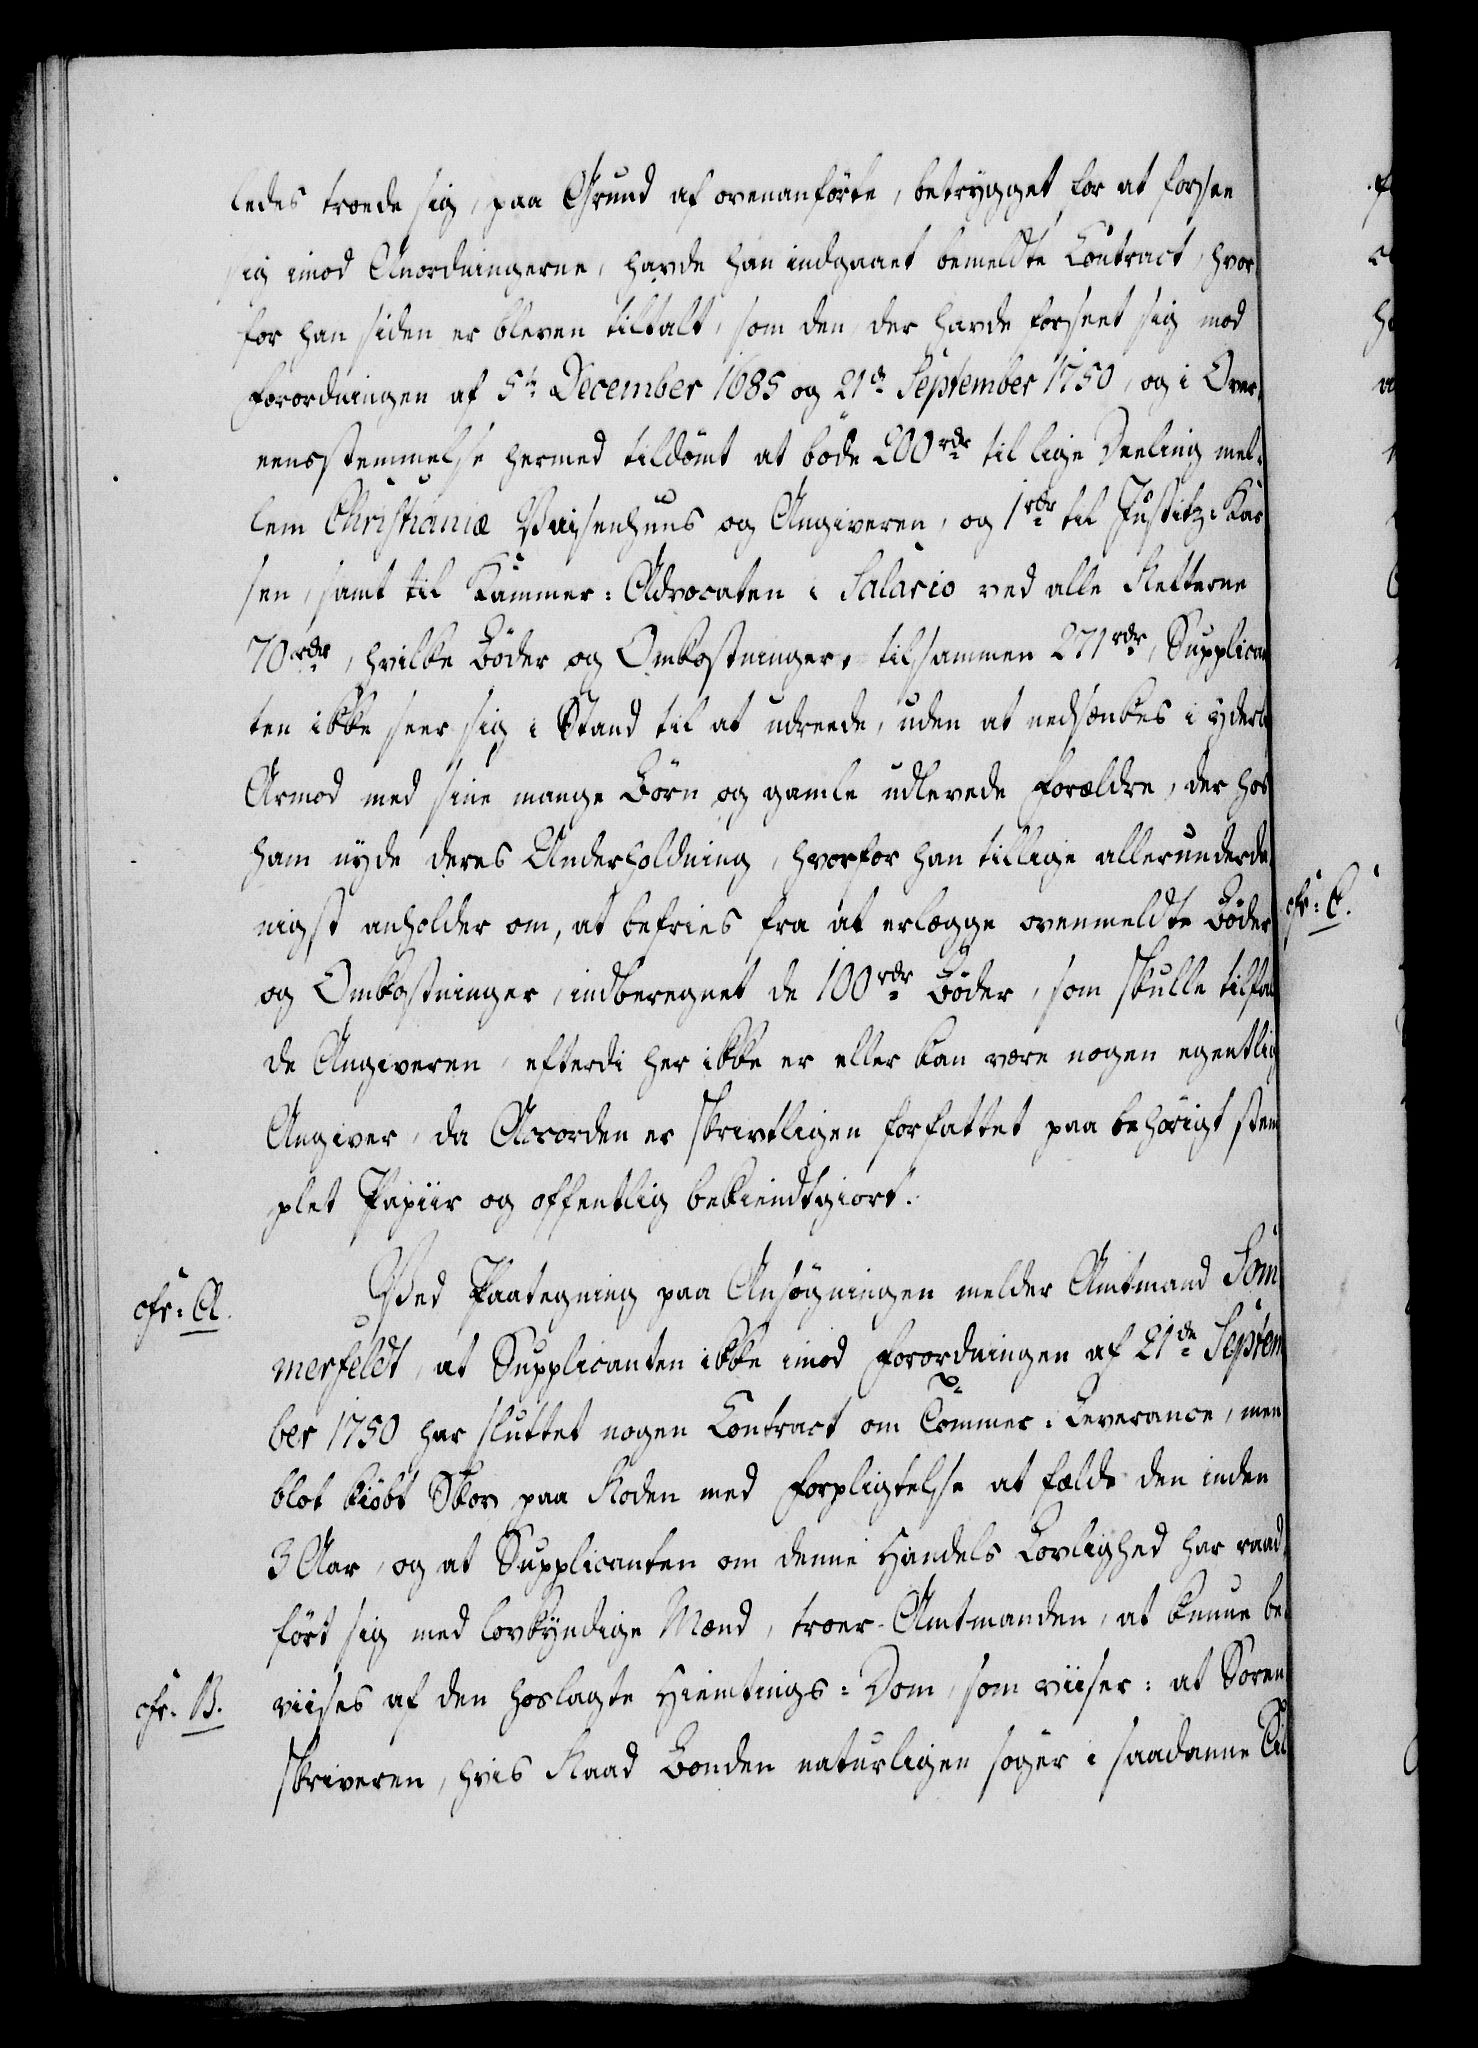 ledes troede sig, paa Grund af ovenanførte, betrygget for at forsee
sig imod Anordningerne, havde han indgaaet bemeldte Contract, hvor
for han siden er bleven tiltalt, som den, der havde forseet sig mod
Forordningen af 5te December 1685 og 21de September 1750, og i Over
eensstemmelse hermed tildømt at bøde 200 rdr til lige Deeling mel-
lem Christianiæ Vaisenhuus og Angiveren, og 1 rdr til Justitz-Kas
sen, samt til Kammer-Advocaten i Salario ved alle Retterne
70 rdr, hvilke Bøder og Omkostninger, tilsammen 271 rdr, Supplican
ten ikke seer sig i Stand til at udreede, uden at nedsænkes i yderst
Armod med sine mange Børn og gamle udlevede Forældre, der hos
ham nyde deres Underholdning, hvorfor han tillige allerunderda
nigst anholder om, at befries fra at erlægge ovenmeldte Bøder
og Omkostninger, indberegnet de 100 rdr Bøder, som skulle tilfal
de Angiveren, efterdi her ikke er eller kan være nogen egentlig
Angiver, da Accorden er skrivtligen forfattet paa behørigt stem
plet Papiir og offentlig bekiendtgiort.
cfr: A. Ved Paategning paa Ansøgningen melder Amtmand Som
merfeldt, at Supplicanten ikke imod Forordningen af 21de Septem
ber 1750 har sluttet nogen Contract om Tømmer-Leverance, men
blot kiøbt Skov paa Roden med Forpligtelse at fælde den inden
3 Aar, og at Supplicanten om denne Handels Lovlighed har raad
ført sig med lovkyndige Mænd, troer Amtmanden, at kunne be
cfr. B. viises af den hoslagte Hiemtings-Dom, som viiser: at Soren
skriveren, hvis Raad Bonden naturligen søger i saadanne Til
cfr: C.